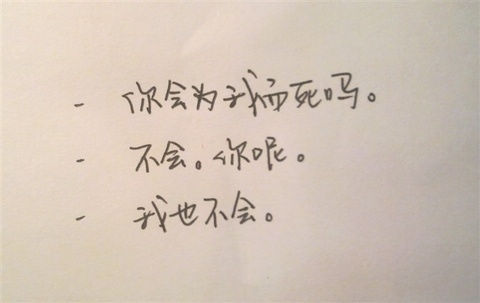 - 你会为我而死吗。
- 不会。你呢。
- 我也不会。